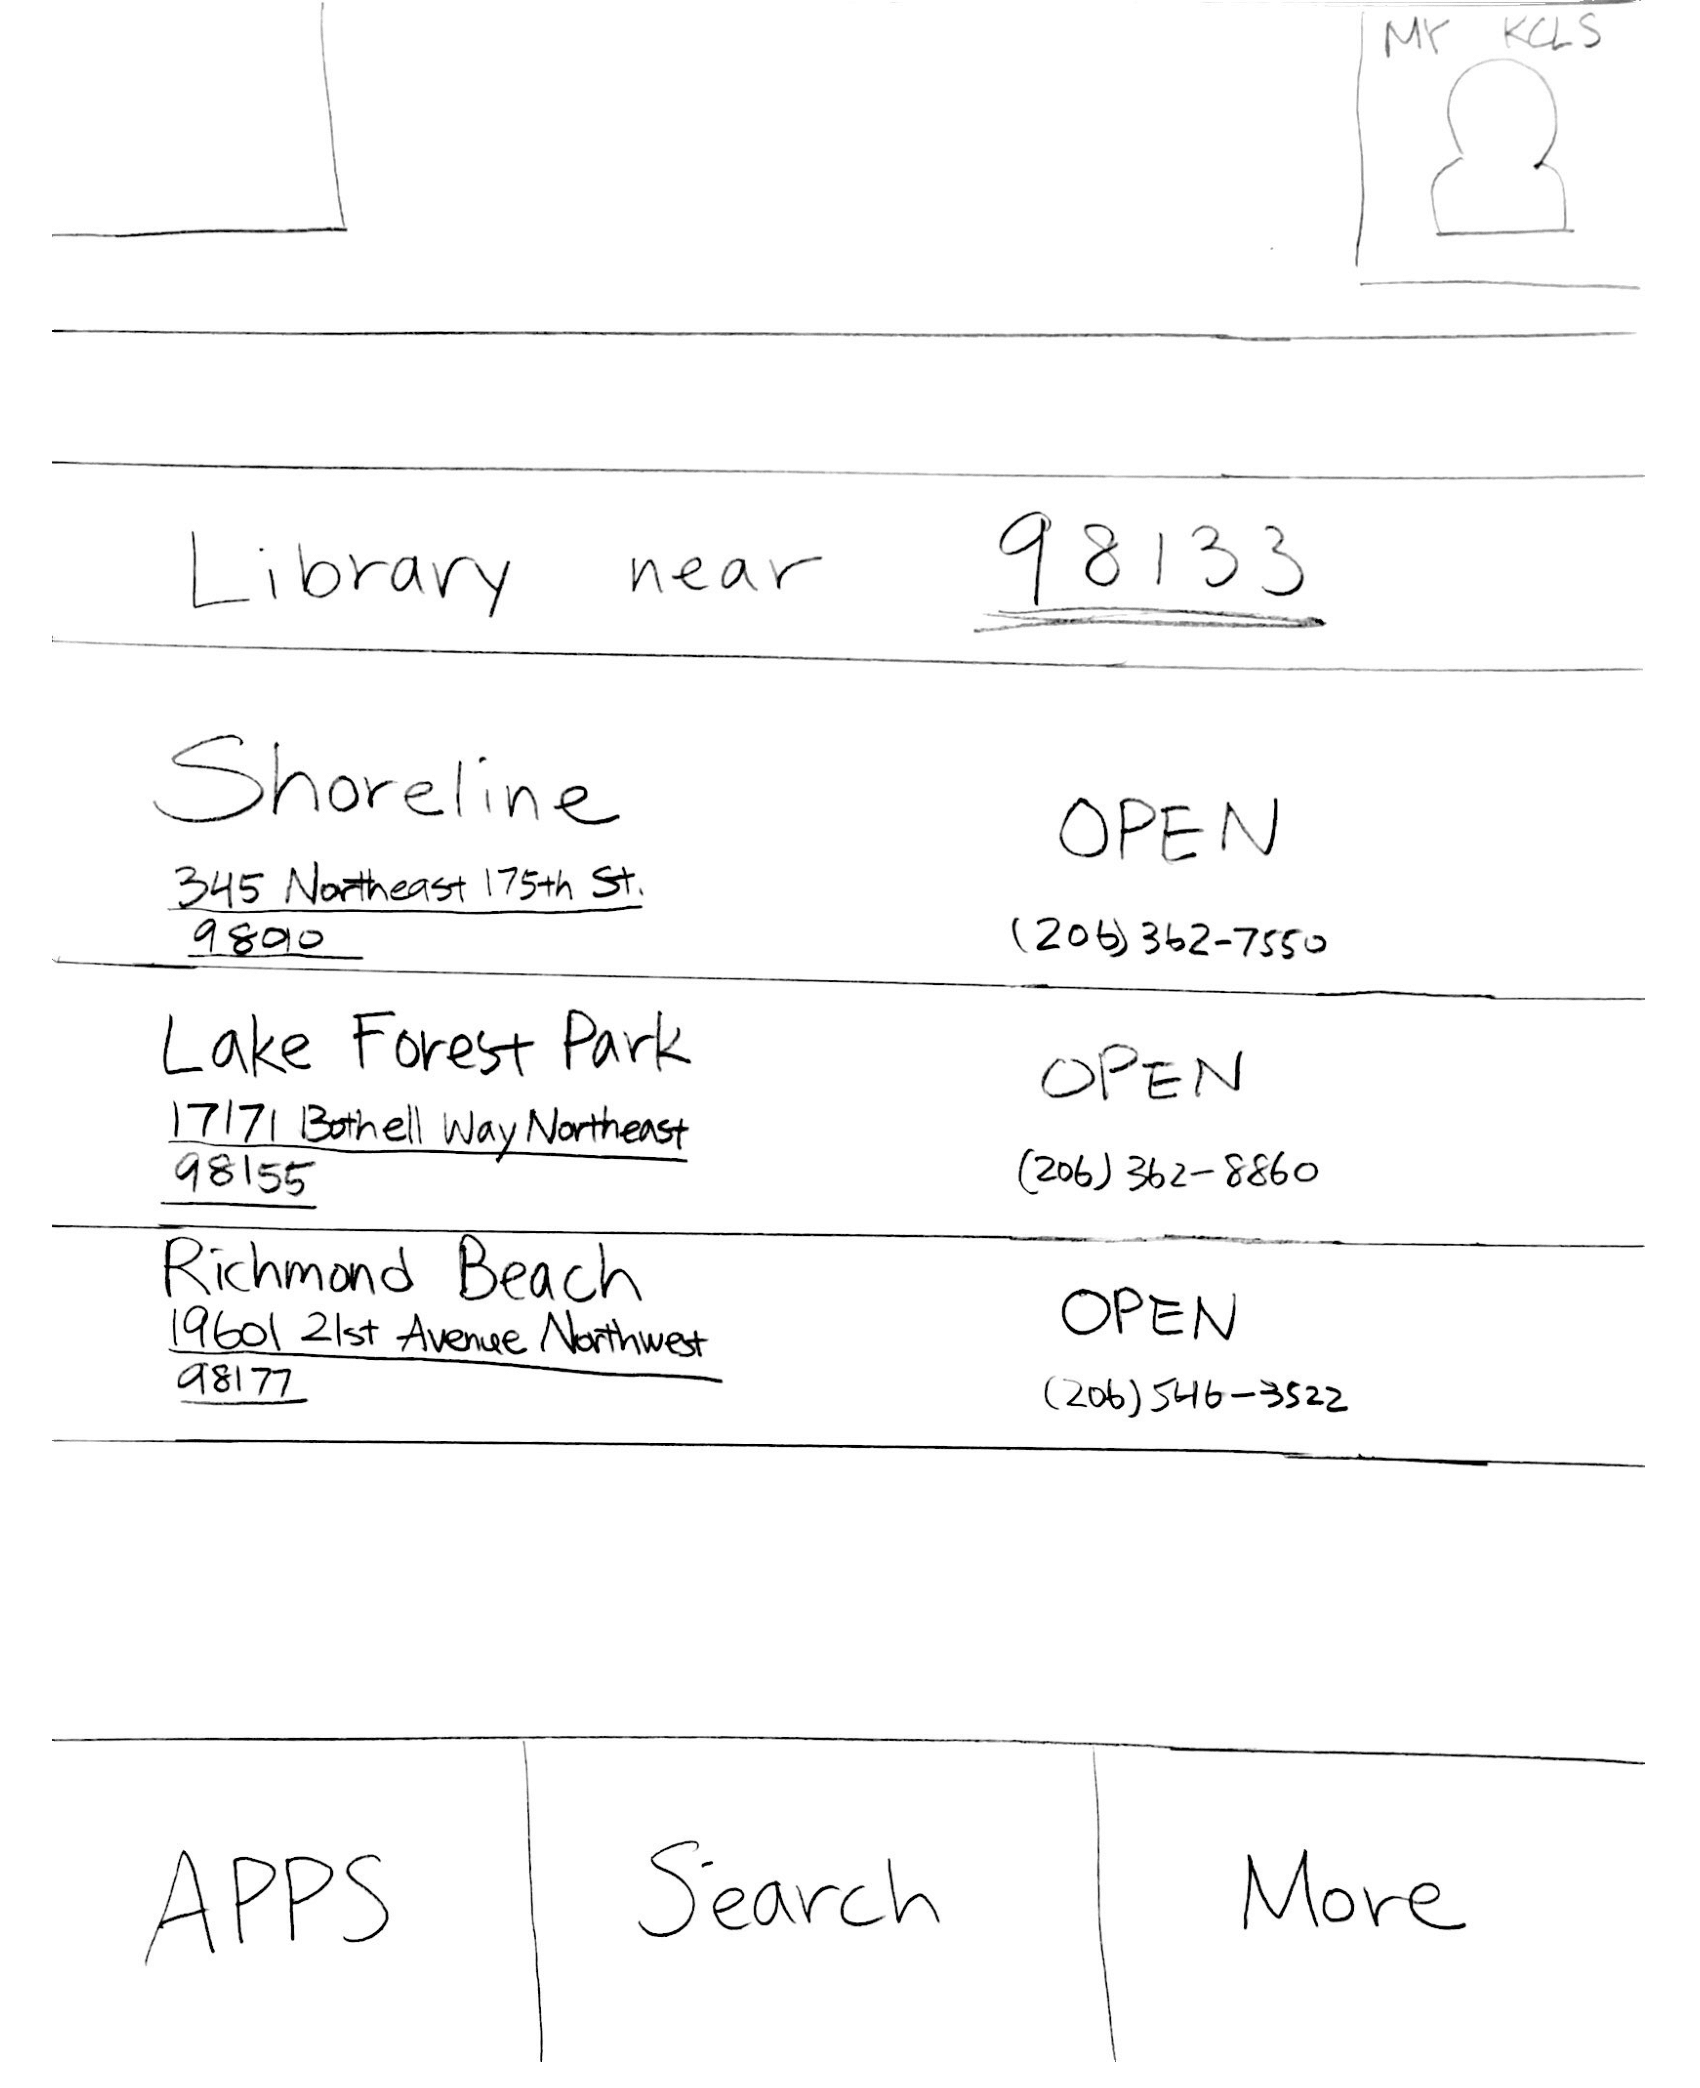 MY KCLS
Library near 98133
Shoreline
OPEN
345 Northeast 175th St.
98010
(206) 362-7550
Lake Forest Park
OPEN
17171 Bothell Way Northeast
98155
(206) 362-8860
Richmond Beach
OPEN
19601 21st Avenue Northwest
98177
(206) 546-3522
APPS Search More